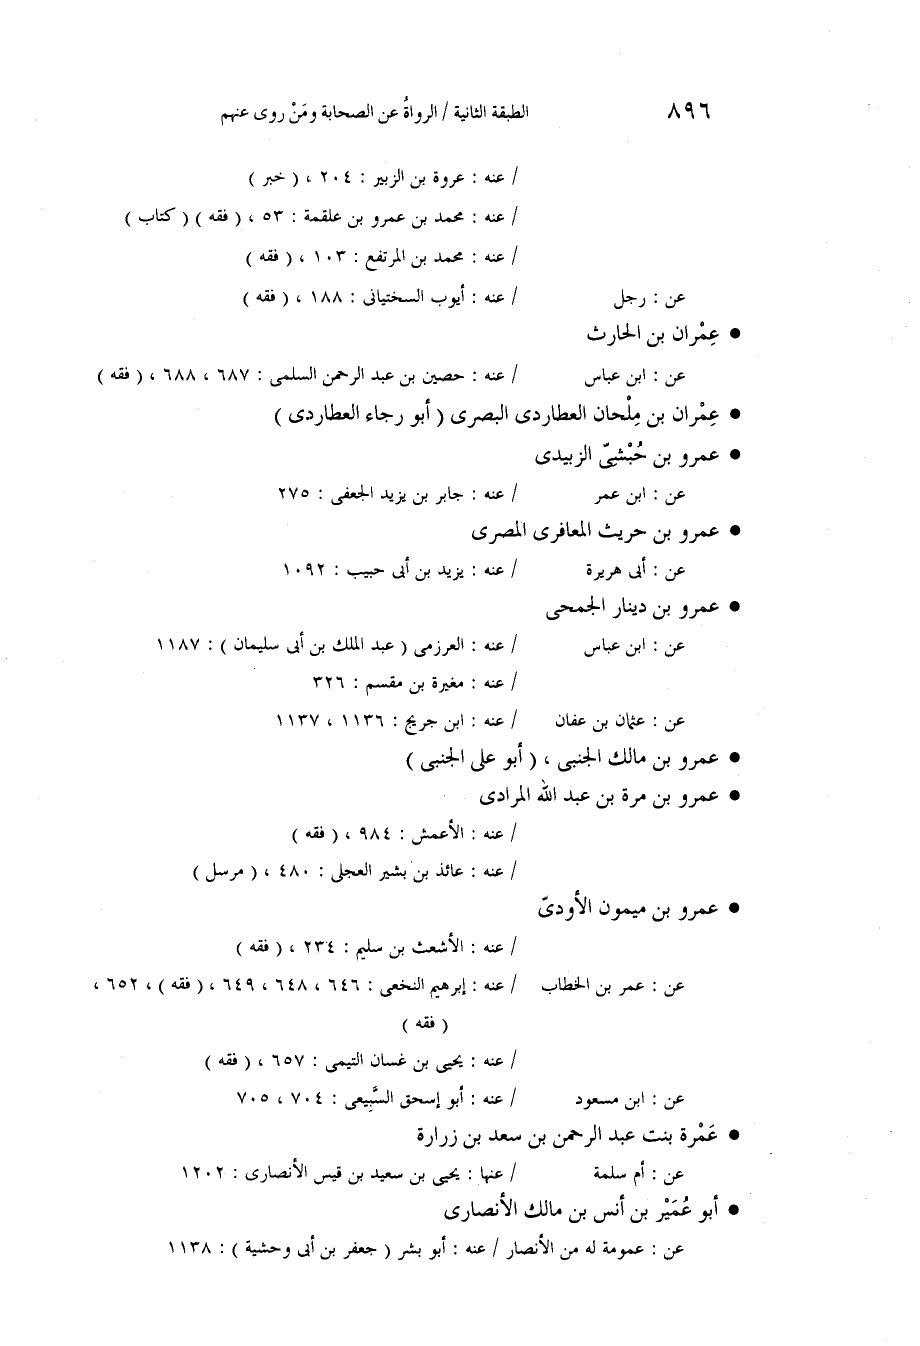 ٨٩٦ الطبقة الثانية / الرواةُ عن الصحابة ومَنْ روى عنهم
/ عنه : عروة بن الزبير : ٢٠٤ ، ( خبر )
/ عنه : محمد بن عمرو بن علقمة : ٥٣ ، ( فقه ) ( كتاب )
/ عنه : محمد بن المرتفع : ١٠٣ ، ( فقه )
عن : رجل / عنه : أيوب السختيانى : ١٨٨ ، ( فقه )
● عِمْران بن الحارث
عن : ابن عباس / عنه : حصين بن عبد الرحمن السلمى : ٦٨٧ ، ٦٨٨ ، ( فقه )
● عِمْران بن مِلْحان العطاردى البصرى ( أبو رجاء العطاردى )
● عمرو بن حُبْشِىّ الزبيدى
عن : ابن عمر / عنه : جابر بن يزيد الجعفى : ٢٧٥
● عمرو بن حريث المعافرى المصرى
عن : أبى هريرة / عنه : يزيد بن أبى حبيب : ١٠٩٢
● عمرو بن دينار الجمحى
عن : ابن عباس / عنه : العرزمى ( عبد الملك بن أبى سليمان ) : ١١٨٧
/ عنه : مغيرة بن مقسم : ٣٢٦
عن : عثمان بن عفان / عنه : ابن جريج : ١١٣٦ ، ١١٣٧
● عمرو بن مالك الجنبى ، ( أبو على الجنبى )
● عمرو بن مرة بن عبد الله المرادى
/ عنه : الأعمش : ٩٨٤ ، ( فقه )
/ عنه : عائذ بن بشير العجلى : ٤٨٠ ، ( مرسل )
● عمرو بن ميمون الأودىّ
/ عنه : الأشعث بن سليم : ٢٣٤ ، ( فقه )
عن : عمر بن الخطاب / عنه : إبرهيم النخعى : ٦٤٦ ، ٦٤٨ ، ٦٤٩ ، ( فقه ) ، ٦٥٢ ،
( فقه )
/ عنه : يحيى بن غسان التيمى : ٦٥٧ ، ( فقه )
عن : ابن مسعود / عنه : أبو إسحق السَّبِيعى : ٧٠٤ ، ٧٠٥
● عَمْرة بنت عبد الرحمن بن سعد بن زرارة
عن : أم سلمة / عنها : يحيى بن سعيد بن قيس الأنصارى : ١٢٠٢
● أبو عُمَيْر بن أنس بن مالك الأنصارى
عن : عمومة له من الأنصار / عنه : أبو بشر ( جعفر بن أبى وحشية ) : ١١٣٨